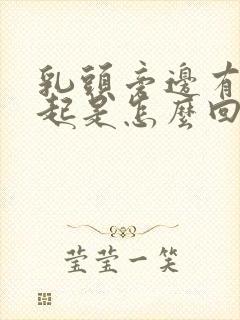 乳頭旁邊有
起是怎麼回
莹莹一笑